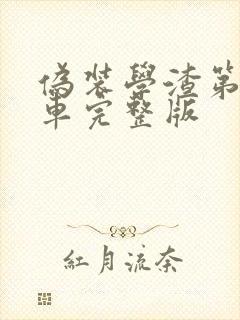 偽裝學渣第
車完整版
紅月流奈